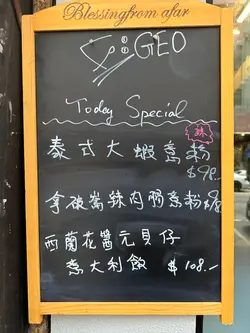 Blessingfrom afar
GEO
Today Special
辣
泰式大蝦意粉
$98.-
拿破崙辣肉腸意粉$98
西蘭花醬元貝仔
意大利飯 $108.-